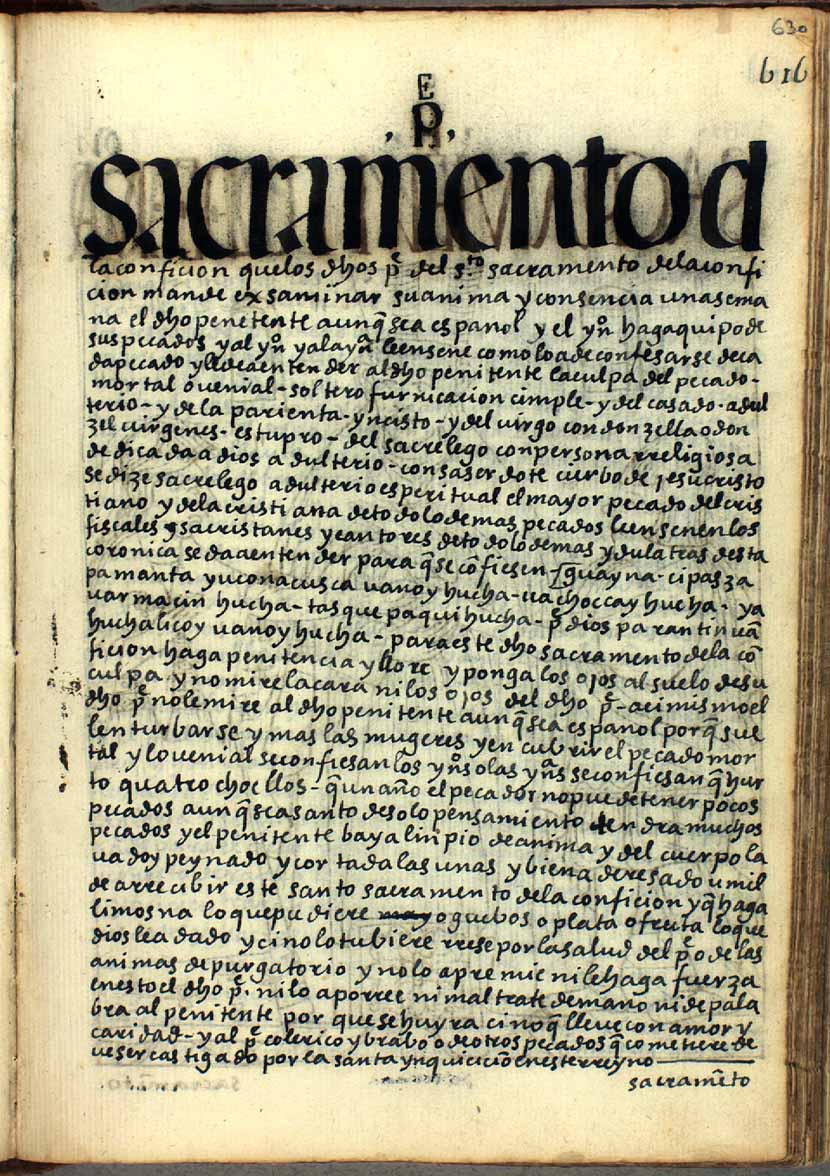 630
616
E
.P.
sacramento d
la conficion que los dhos p.e del s.to sacramento de la confi
cion mande exsaminar su anima y consencia una sema
na el dho penetente aunq̃ sea español y el yn.o haga quipo de
sus pecados y al yn.o y a la yn.a le ensene como lo a de confesarse de ca
da pecado y le de a entender al dho penitente la culpa del pecado -
mortal o uenial - soltero furnicacion cimple - y del casado - adul
terio - y de la parienta - yncisto - y del uirgo con donzella o don
zel uirgenes - estupro - del sacrelego con persona rreligiosa
dedicada a dios adulterio - con saserdote cierbo de jesucristo
se dize sacrelego adulterio esperitual el mayor pecado del cris
tiano y de la cristiana de todo lo demas pecados le ensenen los
fiscales y sacristanes y cantores de todo lo demas y dulatras desta
coronica se da a entender para q̃ se cõfiesen - guayna - cipas za
pamanta yuconacusca uanoy hucha - uachoccay hucha - ya
uarmacin hucha - tasque paquihucha - p.e dios parantin uã
huchallicoy uanoy hucha - para este dho sacramento de la cõ
ficion haga penitencia y llore y ponga los ojos al suelo de su
culpa y no mire la cara ni los ojos del dho p.e - aci mismo el
dho p.e no le mire al dho penitente aunq̃ sea español porq̃ sue
len turbarse y mas las mugeres y encubrir el pecado mor
tal y lo uenial se confiesan los yn.os o las yn.as se confiesan q̃ hur
to quatro chocllos - q̃ un año el pecador no puede tener pocos
pecados aunq̃ sea santo de solo pensamiento tendra muchos
pecados y el penitente baya linpio de anima y del cuerpo la
uado y peynado y cortada las unas y bien aderesado umil
de a rrecibir este santo sacramento de la conficion y q̃ haga
limosna lo que pudiere o guebos o plata o fruta lo que
dios le a dado y ci no lo tubiere rrese por la salud del p.e o de las
animas de purgatorio y no lo apremie ni le haga fuerza
en esto el dho p.e ni lo aporree ni maltrate de mano ni de pala
bra al penitente por que se huyra ci no q̃ lleue con amor y
caridad - y al p.e colerico y brabo o de otros pecados q̃ cometiere de
ue ser castigado por la santa ynquiciciõ en este rreyno
sacramẽto